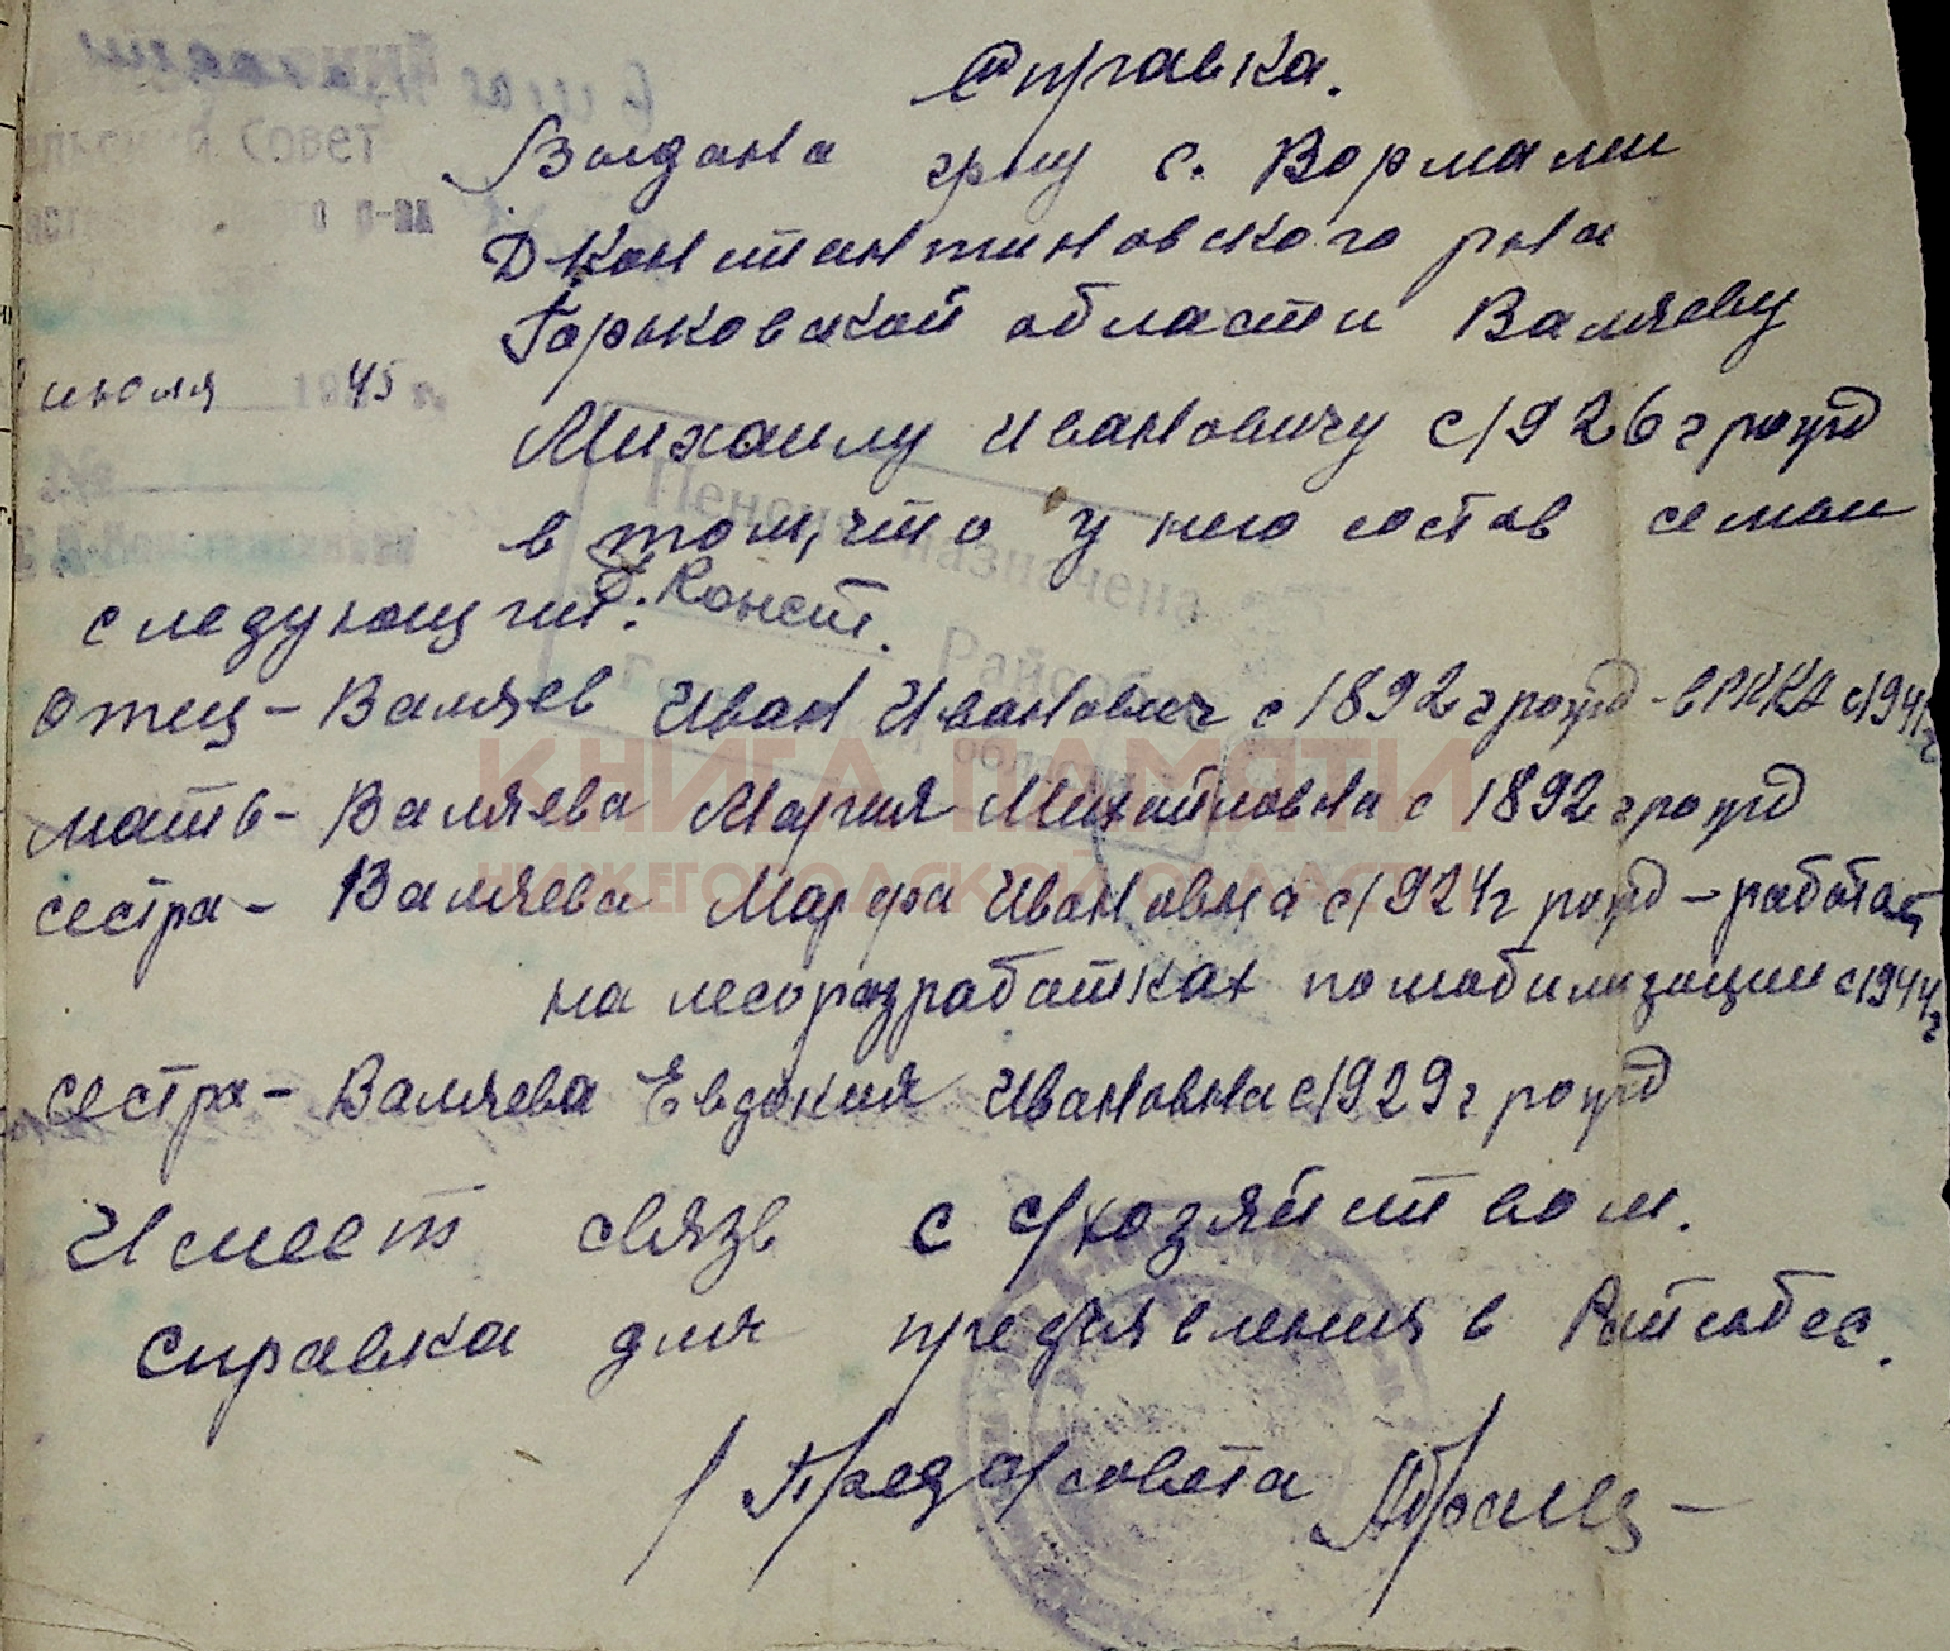 Справка.
Выдана гр-ну с. Вормали
Дконстантиновского р-на
Горьковской области Валяеву
июля 1945 г.
Михаилу Ивановичу с 1926 г рожд
в том, что у него состав семьи
следующий:
Пенсия назначена
Д. Конст. Райсобес
отец - Валяев Иван Иванович с 1892 г рожд - в РККА с 1941 г
мать - Валяева Мария Михайловна с 1892 г рожд
сестра - Валяева Марфа Ивановна с 1924 г рожд - работает
на лесоразработках по мобилизации с 1944 г
сестра - Валяева Евдокия Ивановна с 1929 г рожд
Имеет связь с с/хозяйством.
Справка для предъявления в Райсобес.
/Пред с/совета
Совет
р-на
КНИГА ПАМЯТИ
НИЖЕГОРОДСКОЙ ОБЛАСТИ